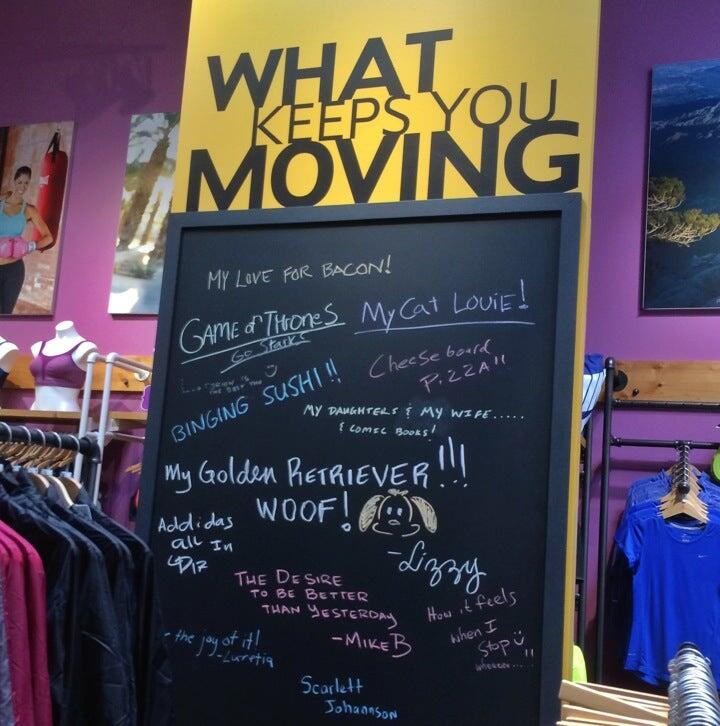 WHAT
KEEPS YOU
MOVING
MY LOVE FOR BACON!
GAME of THRONES
Go Starks
My Cat Louie!
Cheeseboard
PiZZA!!
BINGING SUSHI!!
MY DAUGHTERS & MY WIFE.....
& COMIC BOOKS!
My Golden RETRIEVER!!!
WOOF!
-Lizzy
Addidas
all In
THE DESIRE
TO BE BETTER
THAN YESTERDAY
-MIKE B
How it feels
when I
Stop
- the joy of it!
-Lucretia
Scarlett
Johannson